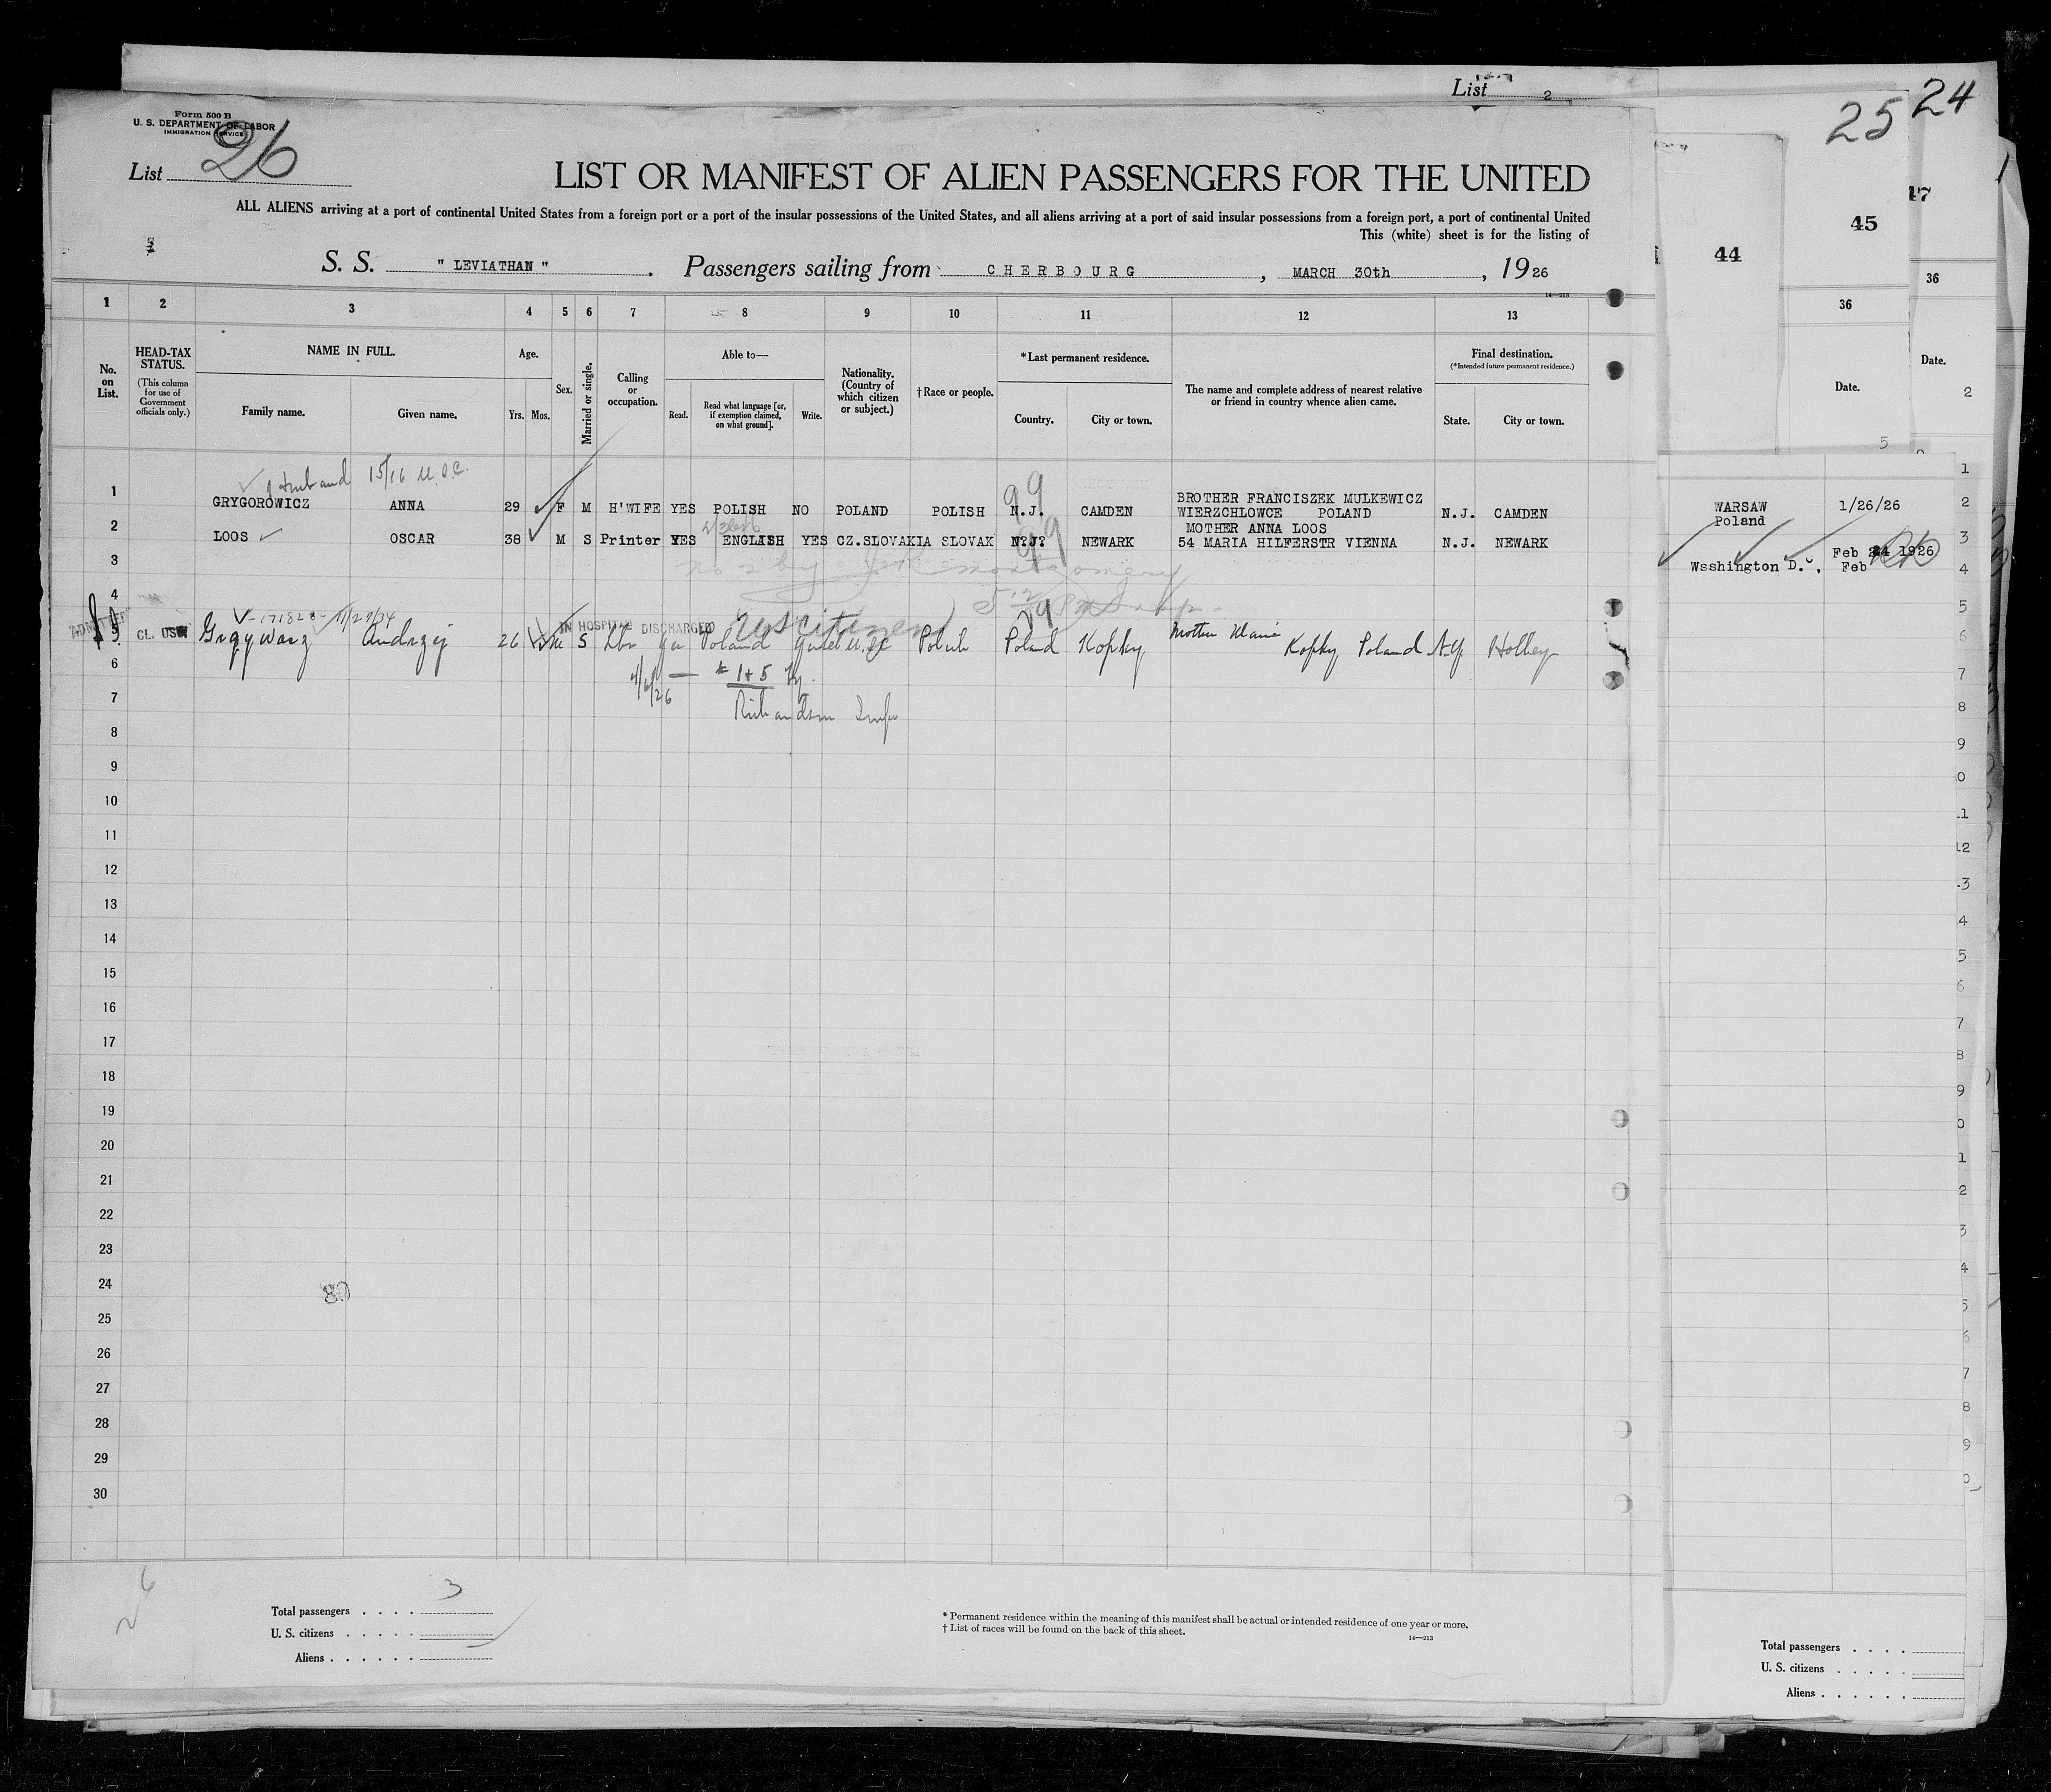 List 2
24
25
47
45
44
36
36
Form 500 B
U. S. DEPARTMENT OF LABOR
IMMIGRATION SERVICE
List 26
LIST OR MANIFEST OF ALIEN PASSENGERS FOR THE UNITED
ALL ALIENS arriving at a port of continental United States from a foreign port or a port of the insular possessions of the United States, and all aliens arriving at a port of said insular possessions from a foreign port, a port of continental United
This (white) sheet is for the listing of
S. S. " LEVIATHAN " . Passengers sailing from CHERBOURG , MARCH 30th , 1926
14—213
1 2 3 4 5 6 7 8 9 10 11 12 13
No. on List.
HEAD-TAX STATUS.
(This column for use of Government officials only.)
NAME IN FULL.
Family name. Given name.
Age.
Yrs. Mos.
Sex.
Married or single.
Calling or occupation.
Able to—
Read. Read what language [or, if exemption claimed, on what ground]. Write.
Nationality. (Country of which citizen or subject.)
†Race or people.
*Last permanent residence.
Country. City or town.
The name and complete address of nearest relative or friend in country whence alien came.
Final destination.
(*Intended future permanent residence.)
State. City or town.
Date.
Date.
Husband 15/16 U.S.C.
99
1 GRYGOROWICZ ANNA 29 F M H'WIFE YES POLISH NO POLAND POLISH N.J. CAMDEN BROTHER FRANCISZEK MULKEWICZ
WIERZCHLOWCE POLAND N.J. CAMDEN
99
2 LOOS OSCAR 38 M S Printer YES ENGLISH YES CZ.SLOVAKIA SLOVAK N?J? NEWARK MOTHER ANNA LOOS
54 MARIA HILFERSTR VIENNA N.J. NEWARK
3
No 2 by J K Montgomery
4
171828 - 11/27/34
ADMITTED
IN HOSPITAL DISCHARGED
US citizen
5 CL. USC Grzywacz Andrzej 26 M S Lbr Poland Polish Poland Kopky Mother Maria
Kopky Poland N.Y. Holley
6
4/6/26 — # 1+5
7
Richardson Insp
8
9
10
11
12
13
14
15
16
17
18
19
20
21
22
23
24
80
25
26
27
28
29
30
Total passengers . . . . 3
U. S. citizens . . . . .
Aliens . . . . . .
* Permanent residence within the meaning of this manifest shall be actual or intended residence of one year or more.
† List of races will be found on the back of this sheet.
14—213
WARSAW
Poland
1/26/26
Washington D.
Feb 24 1926
Feb
Total passengers . . . .
U. S. citizens . . . . .
Aliens . . . . . .